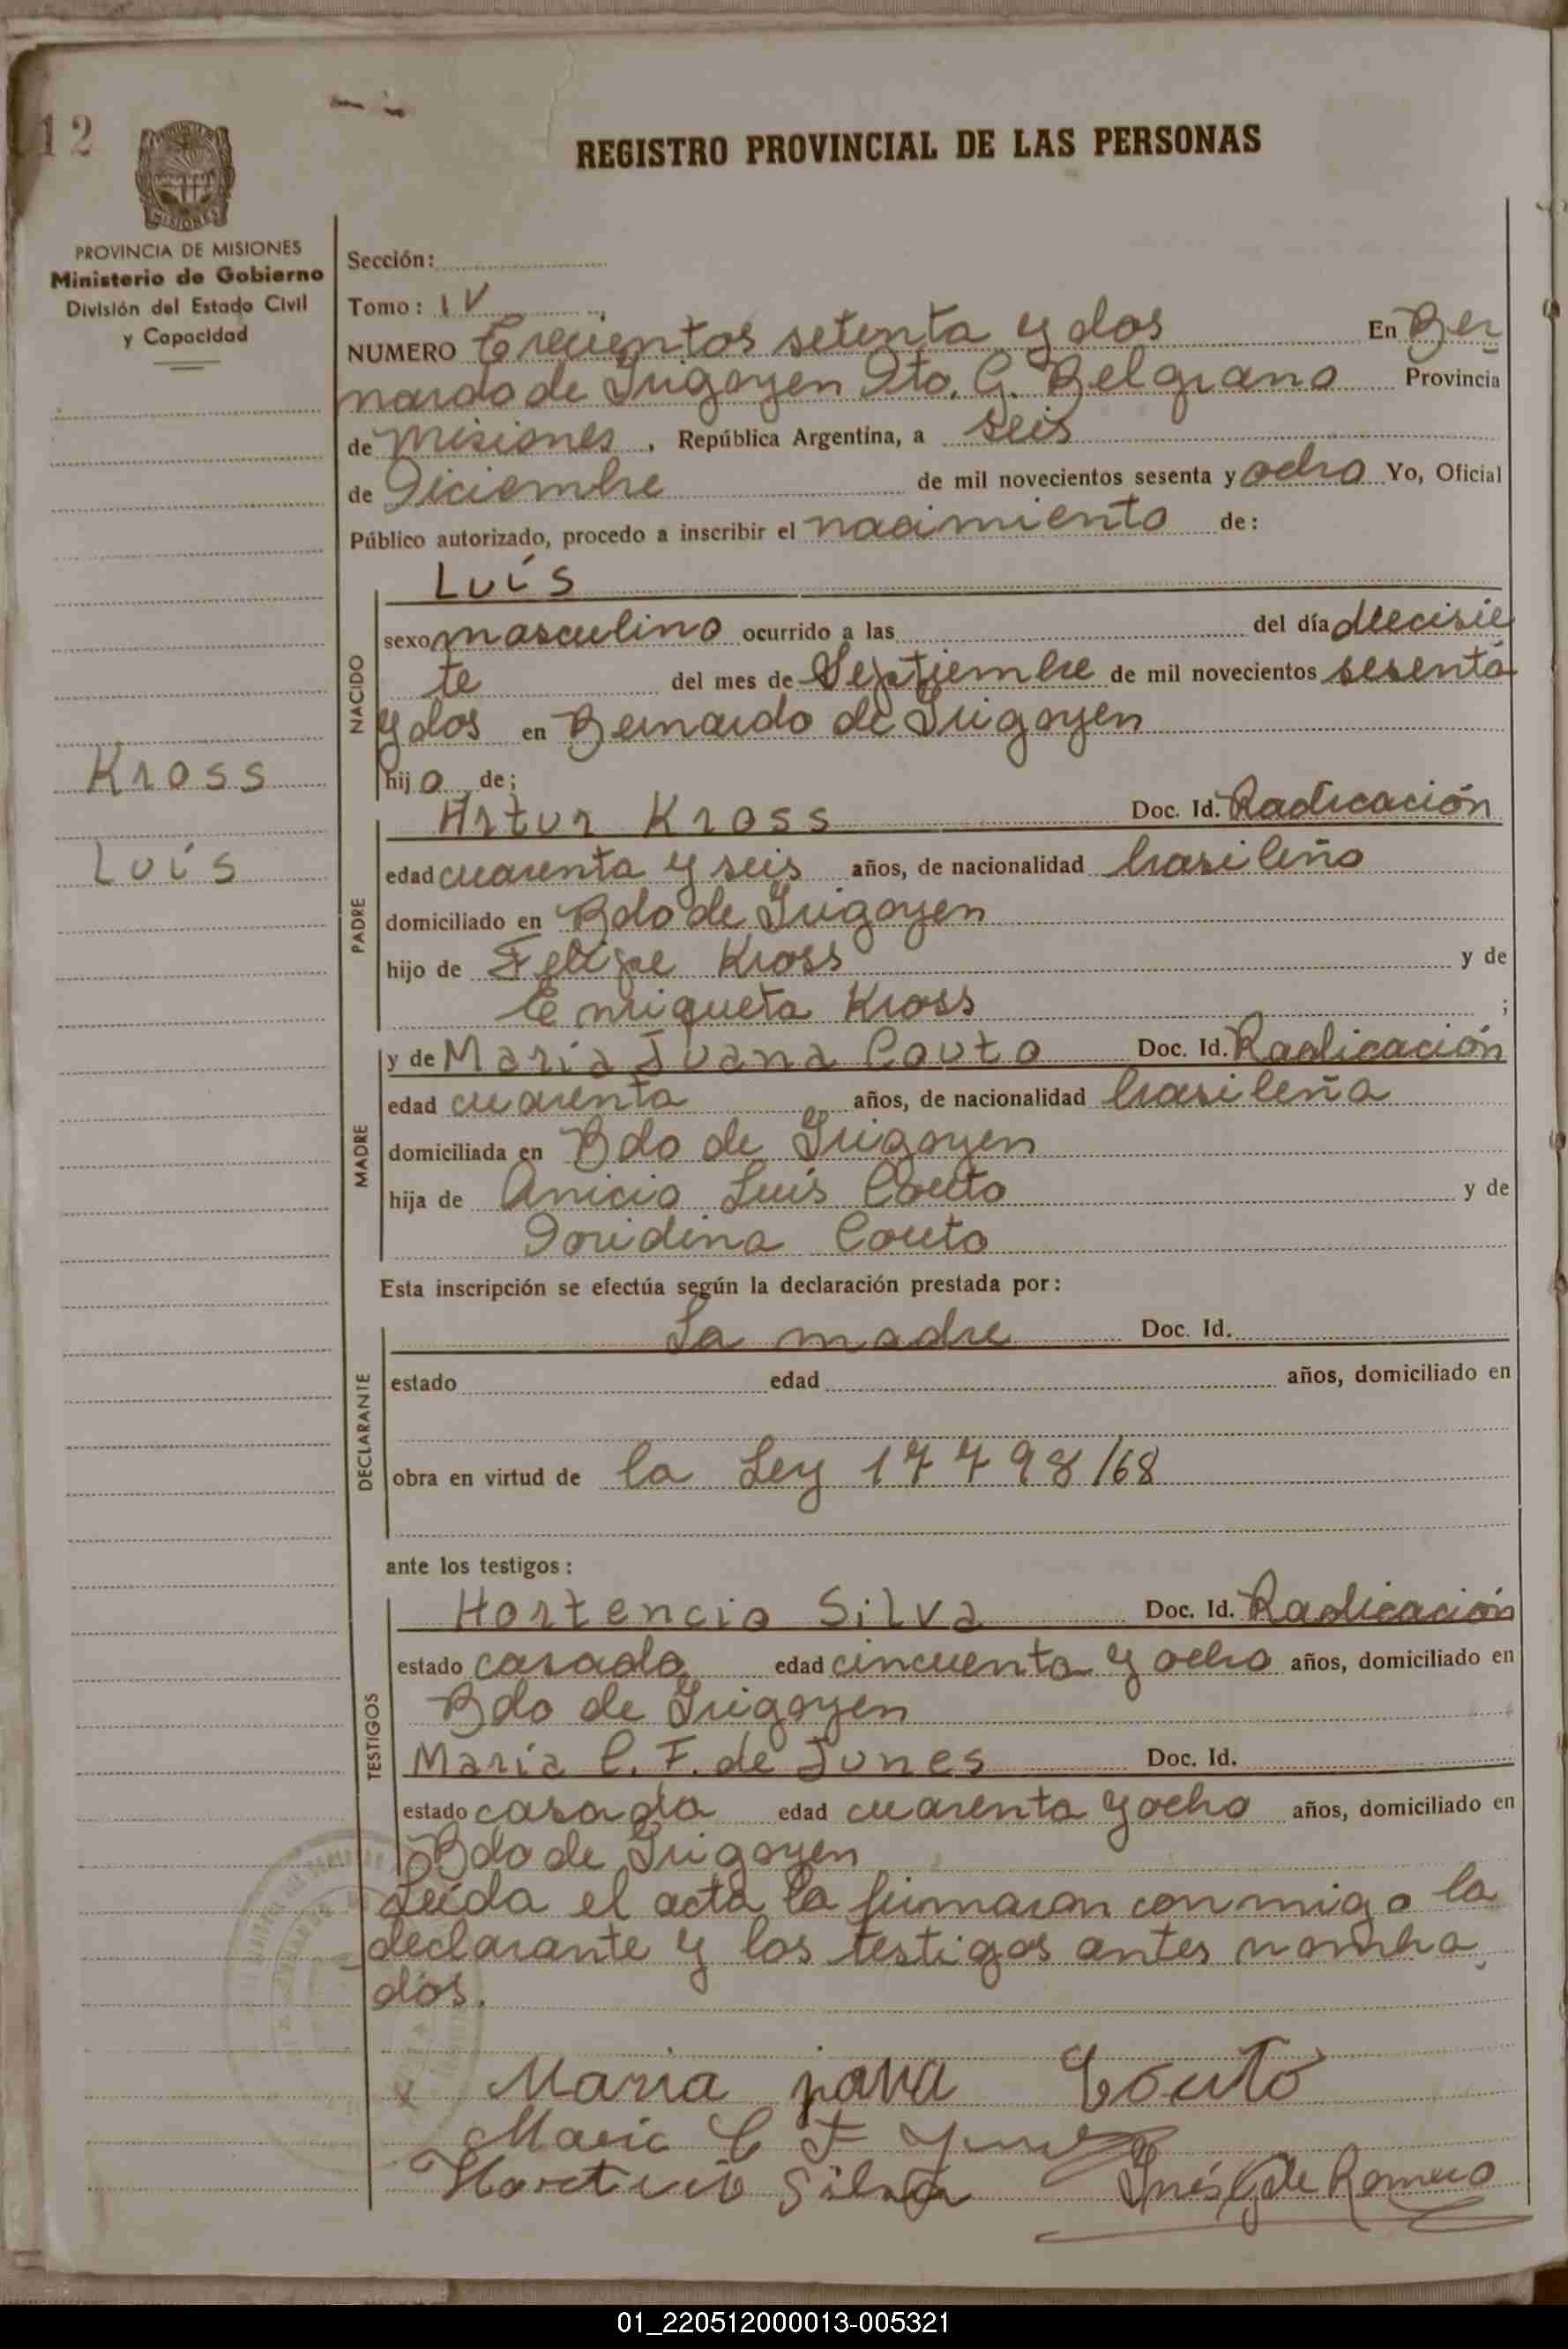 12
MISIONES
PROVINCIA DE MISIONES
Ministerio de Gobierno
División del Estado Civil
y Capacidad
Kross
Luís
REGISTRO PROVINCIAL DE LAS PERSONAS
Sección:
Tomo: IV
NUMERO Trecientos setenta y dos En Ber
nardo de Irigoyen Dto. G. Belgrano Provincia
de Misiones, República Argentina, a seis
de Diciembre de mil novecientos sesenta y ocho Yo, Oficial
Público autorizado, procedo a inscribir el nacimiento de:
Luís
NACIDO
sexo masculino ocurrido a las del día diecisie
te del mes de Septiembre de mil novecientos sesenta
y dos en Bernardo de Irigoyen
hijo de;
PADRE
Artur Kross Doc. Id. Radicación
edad cuarenta y seis años, de nacionalidad brasileño
domiciliado en Bdo de Irigoyen
hijo de Felipe Kross y de
Enriqueta Kross ;
MADRE
y de María Juana Couto Doc. Id. Radicación
edad cuarenta años, de nacionalidad brasileña
domiciliada en Bdo de Irigoyen
hija de Anicio Luís Couto y de
Doridina Couto
Esta inscripción se efectúa según la declaración prestada por:
DECLARANTE
La madre Doc. Id.
estado edad años, domiciliado en
obra en virtud de la Ley 17798/68
ante los testigos:
TESTIGOS
Hortencio Silva Doc. Id. Radicación
estado casado edad cincuenta y ocho años, domiciliado en
Bdo de Irigoyen
María C. F. de Junes Doc. Id.
estado casada edad cuarenta y ocho años, domiciliado en
Bdo de Irigoyen
Leída el acta la firmaron conmigo la
declarante y los testigos antes nombra
dos.
Maria joana Couto
Maria C F
Silva Inés de Romero
01_220512000013-005321